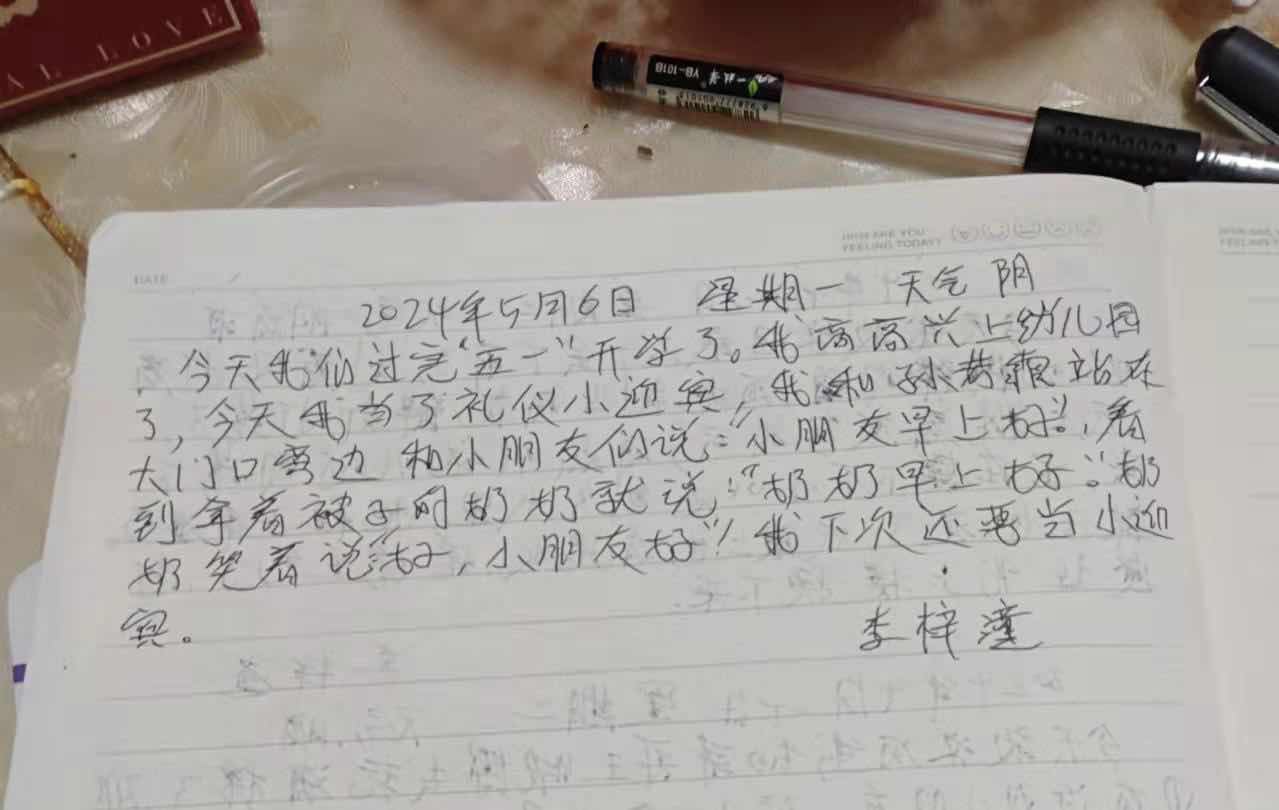 AL LOVE
YB-101B
HOW ARE YOU
FEELING TODAY?
DATE
2024年5月6日 星期一 天气 阴
今天我们过完“五一”开学了。我高高兴上幼儿园
了,今天我当了礼仪小迎宾,我和孙若霖站在
大门口旁边 和小朋友们说:“小朋友早上好。”,看
到拿着被子的奶奶就说:“奶奶早上好。”奶
奶笑着说:“好,小朋友好”!我下次还要当小迎
宾。
李梓潼